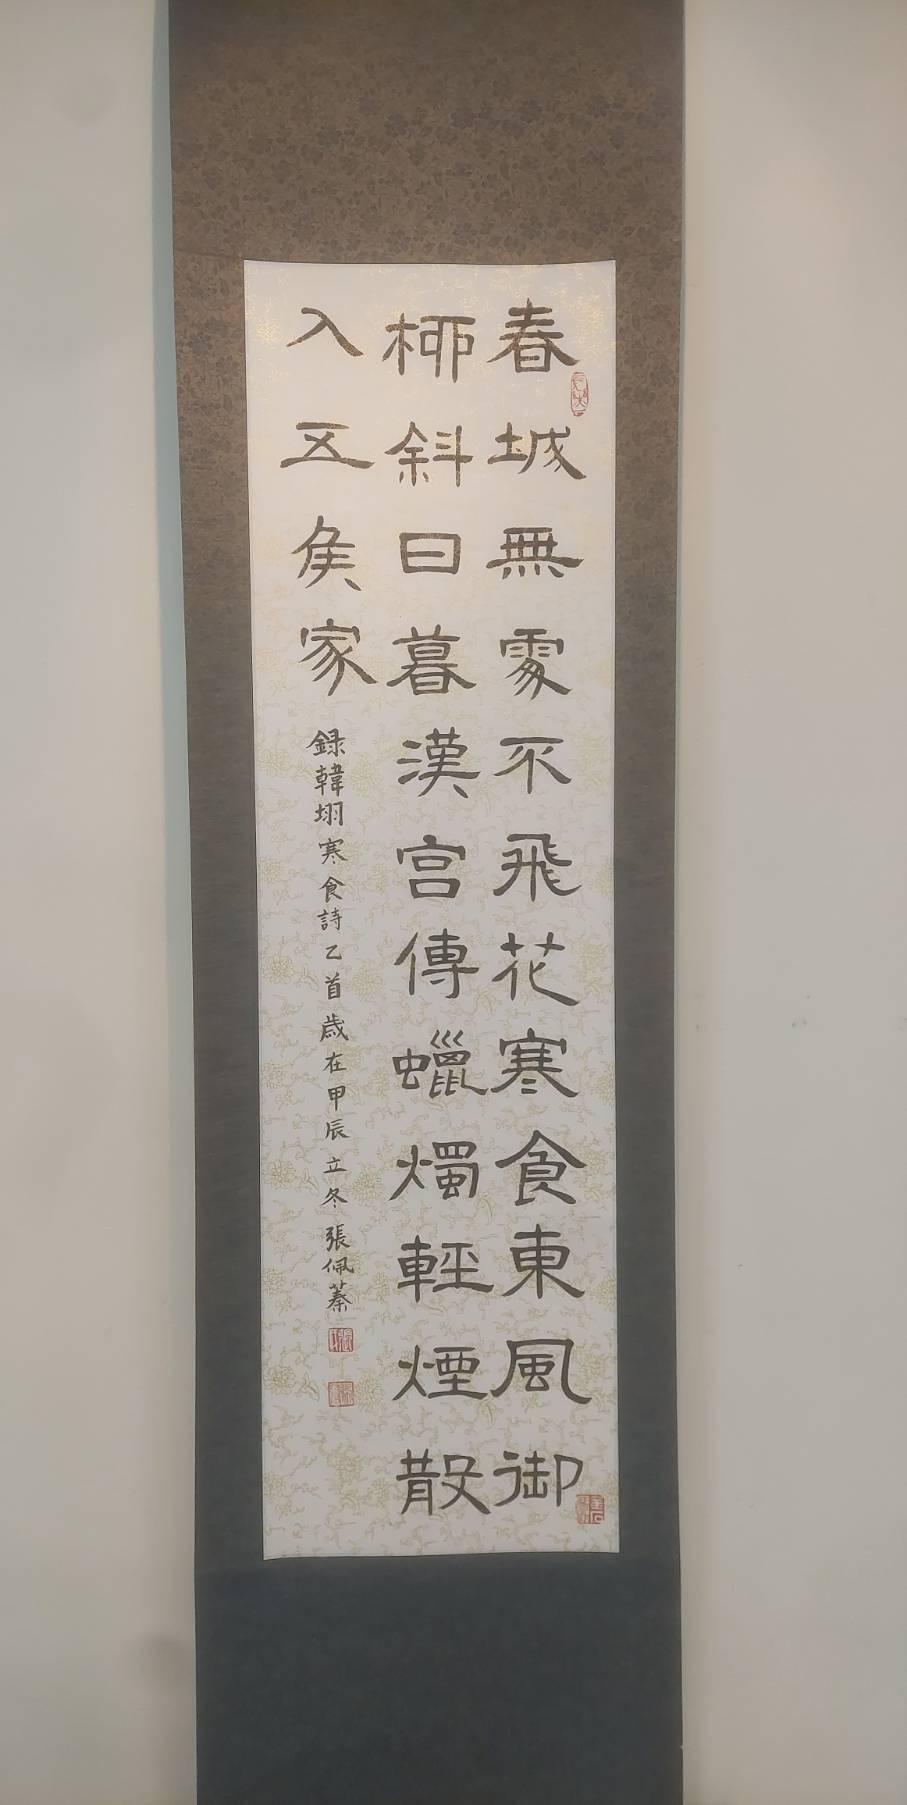 春城無處不飛花寒食東風御
柳斜日暮漢宮傳蠟燭輕煙散
入五侯家
録韓翃寒食詩乙首歲在甲辰立冬張佩蓁